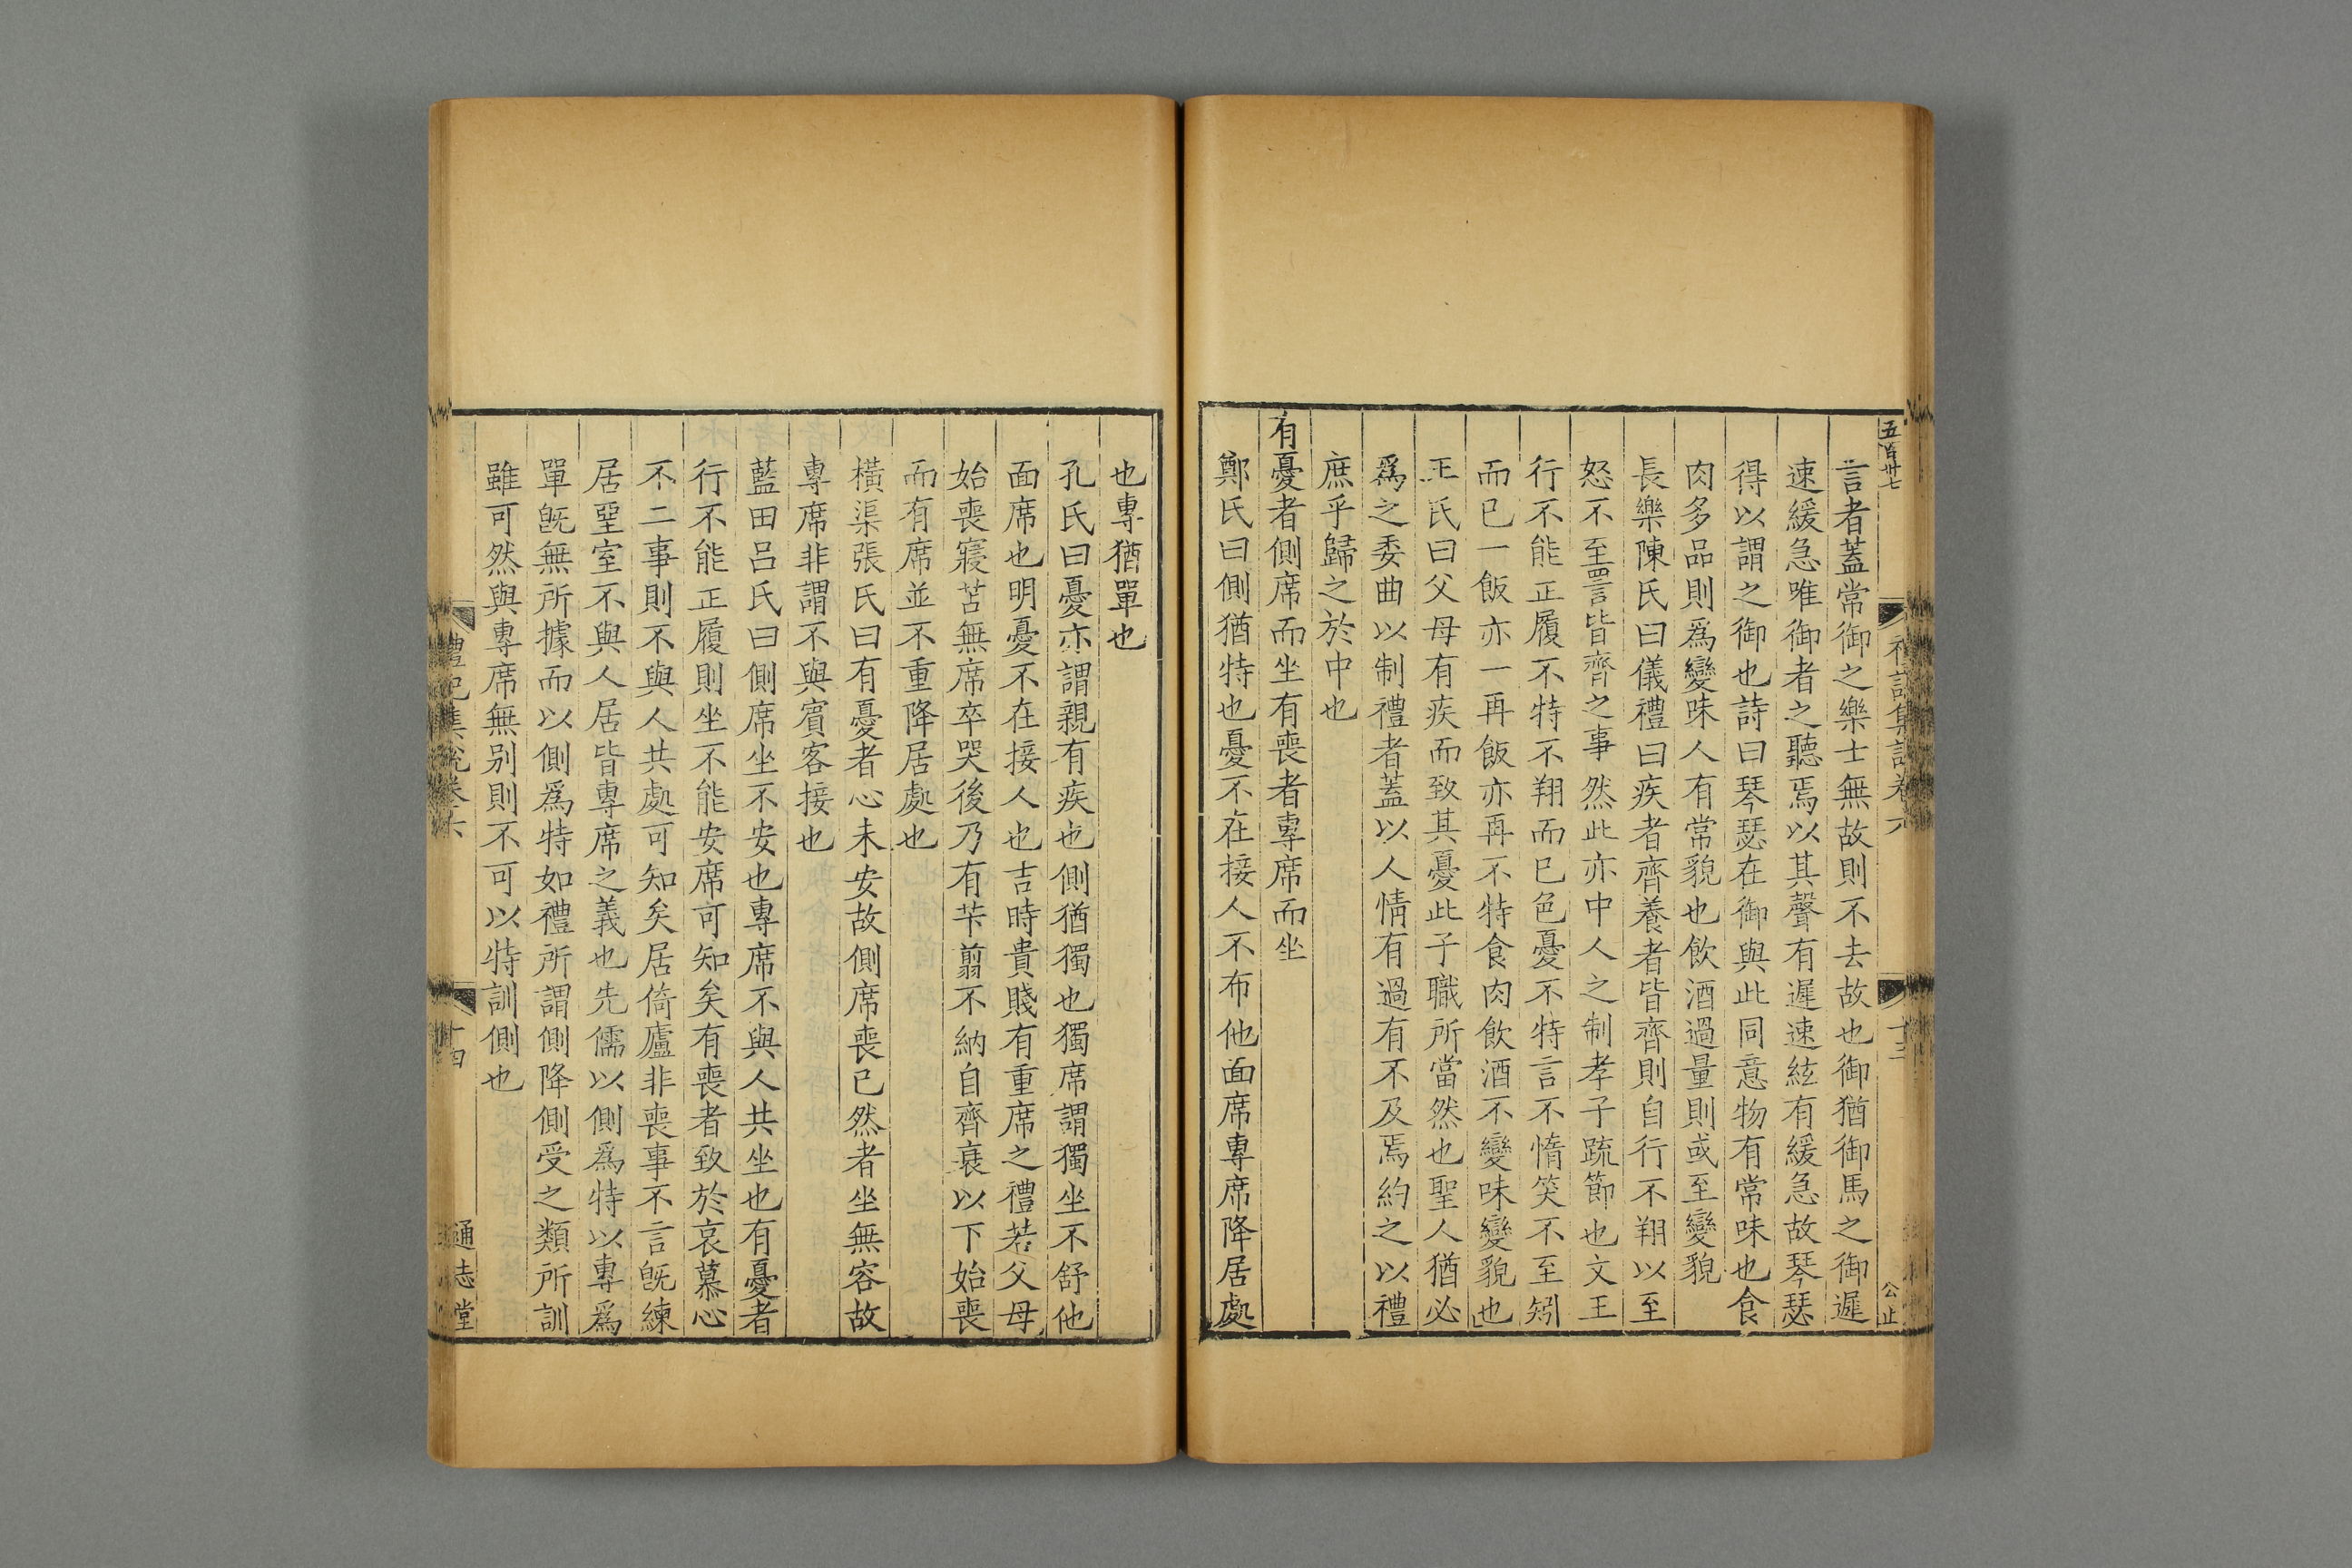 五百卅七
禮記集說卷六
十三
公止
言者蓋常御之樂士無故則不去故也御猶御馬之御遲
速緩急唯御者之聽焉以其聲有遲速絃有緩急故琴瑟
得以謂之御也詩曰琴瑟在御與此同意物有常味也食
肉多品則爲變味人有常貌也飮酒過量則或至變貌
長樂陳氏曰儀禮曰疾者齊養者皆齊則自行不翔以至
怒不至詈皆齊之事然此亦中人之制孝子疏節也文王
行不能正履不特不翔而已色憂不特言不惰笑不至矧
而已一飯亦一再飯亦再不特食肉飮酒不變味變貌也
王氏曰父母有疾而致其憂此子職所當然也聖人猶必
爲之委曲以制禮者蓋以人情有過有不及焉約之以禮
庶乎歸之於中也
有憂者側席而坐有喪者專席而坐
鄭氏曰側猶特也憂不在接人不布他面席專席降居處
也專猶單也
孔氏曰憂亦謂親有疾也側猶獨也獨席謂獨坐不舒他
面席也明憂不在接人也吉時貴賤有重席之禮若父母
始喪寢苫無席卒哭後乃有芐翦不納自齊衰以下始喪
而有席並不重降居處也
橫渠張氏曰有憂者心未安故側席喪已然者坐無容故
專席非謂不與賓客接也
藍田呂氏曰側席坐不安也專席不與人共坐也有憂者
行不能正履則坐不能安席可知矣有喪者致於哀慕心
不二事則不與人共處可知矣居倚廬非喪事不言旣練
居堊室不與人居皆專席之義也先儒以側爲特以專爲
單旣無所據而以側爲特如禮所謂側降側受之類所訓
雖可然與專席無别則不可以特訓側也
禮記集說卷六
十四
通志堂